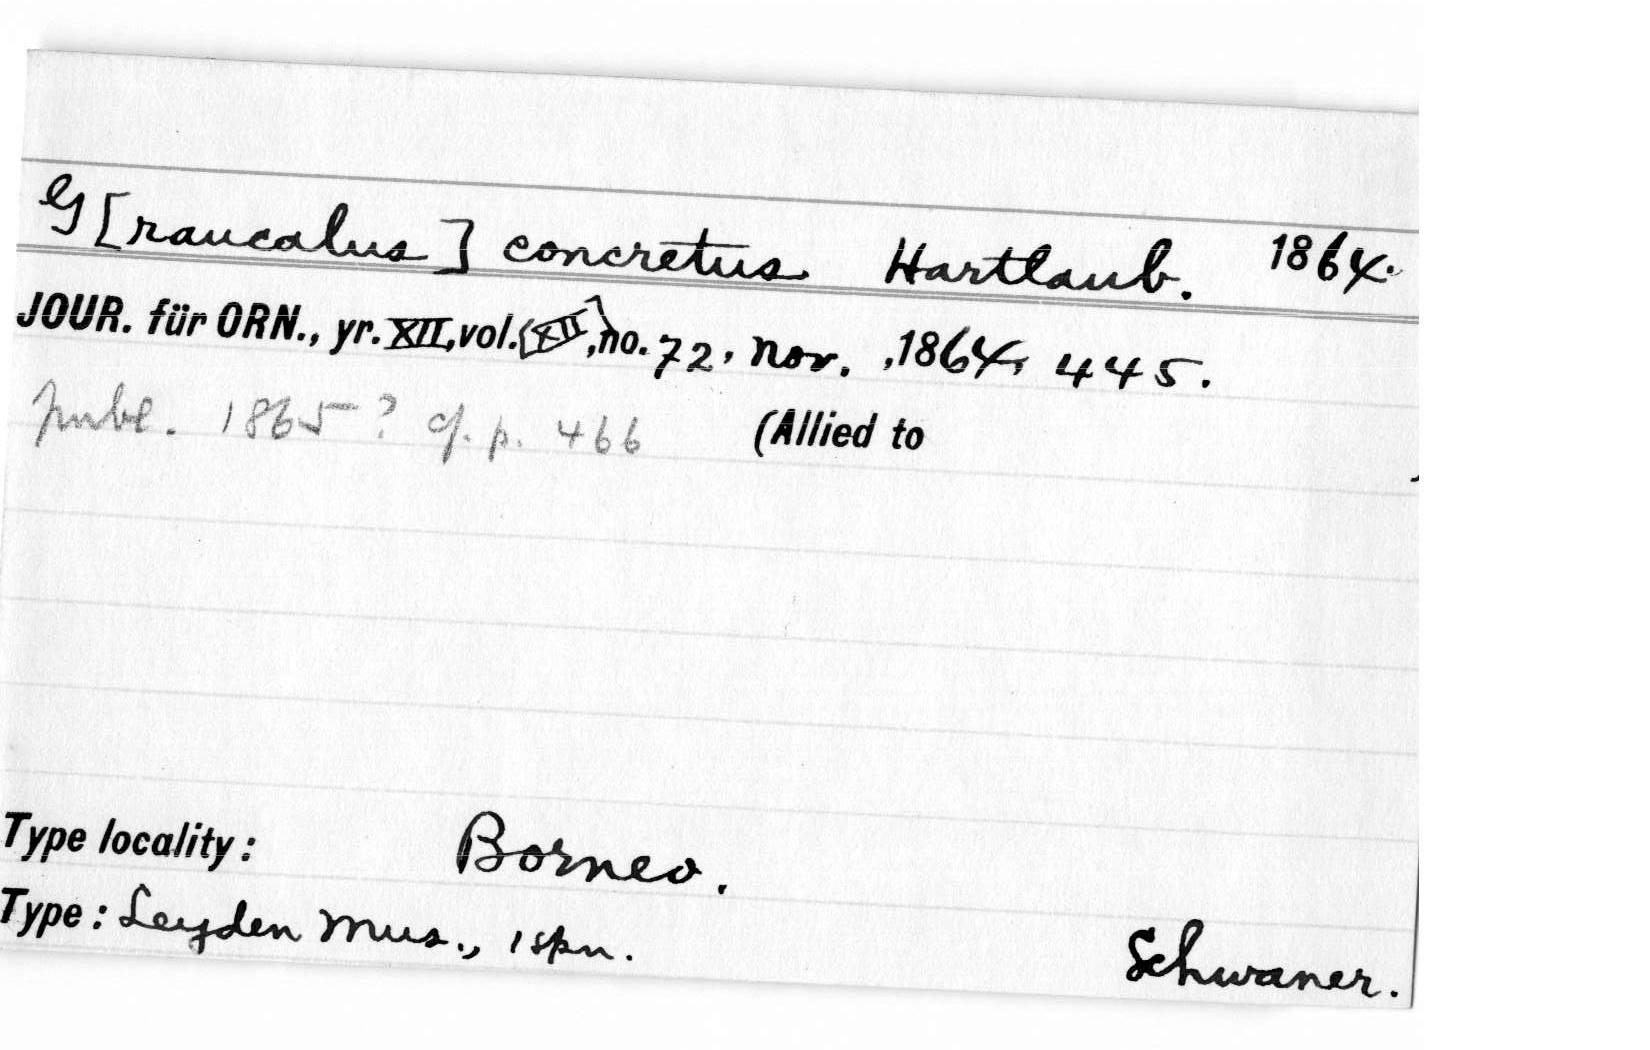 G[raucalus] concretus Hartlaub. 1864.
JOUR. für ORN., yr. XII, vol. (XII), no. 72, Nov. ,1864, 445.
publ. 1865? cf. p. 466 (Allied to )
Type locality: Borneo.
Type: Leyden Mus., 1 spn. Schwaner.